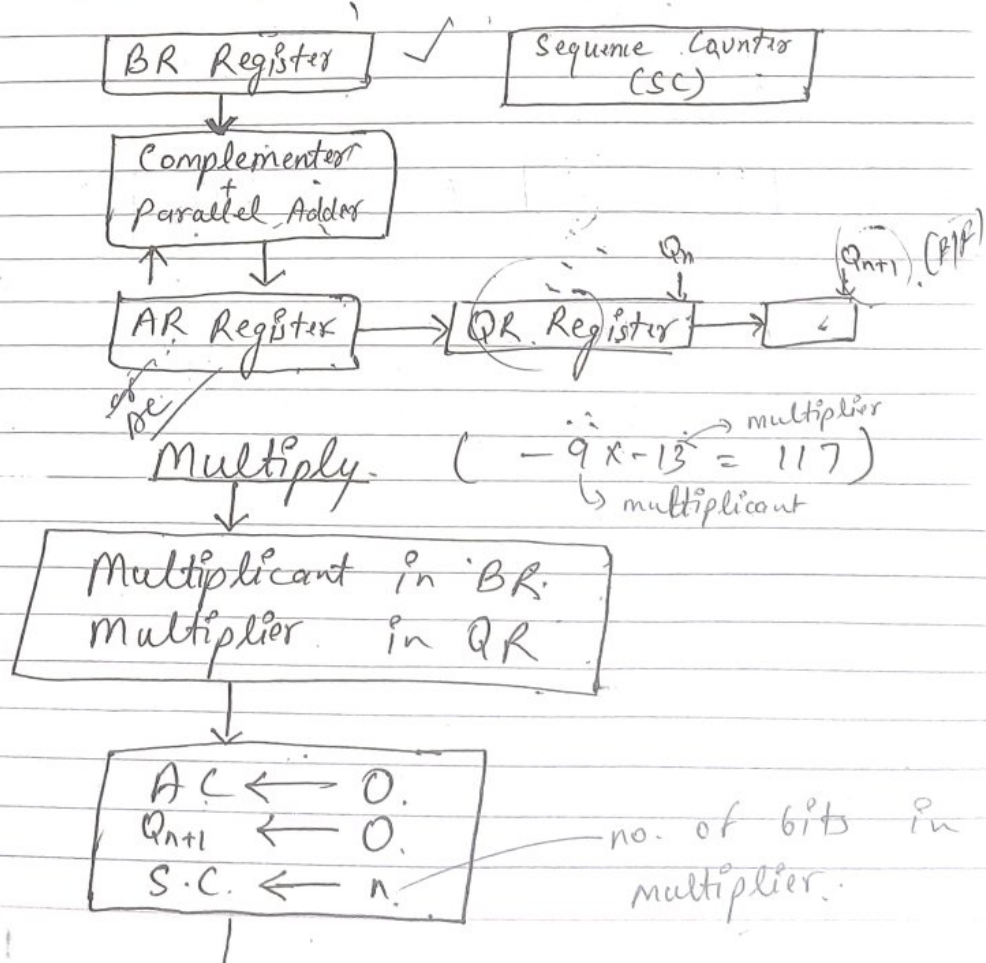 BR Register ✓
Sequence Counter
(SC)
Complementer
+
Parallel Adder
Qn
Qn+1 (F/F)
AR Register
QR Register
or
Multiply. ( -9 x -13 = 117 )
multiplier
multiplicant
Multiplicant in BR.
Multiplier in QR
AC ← 0.
Qn+1 ← 0.
S.C. ← n.
no. of bits in
multiplier.